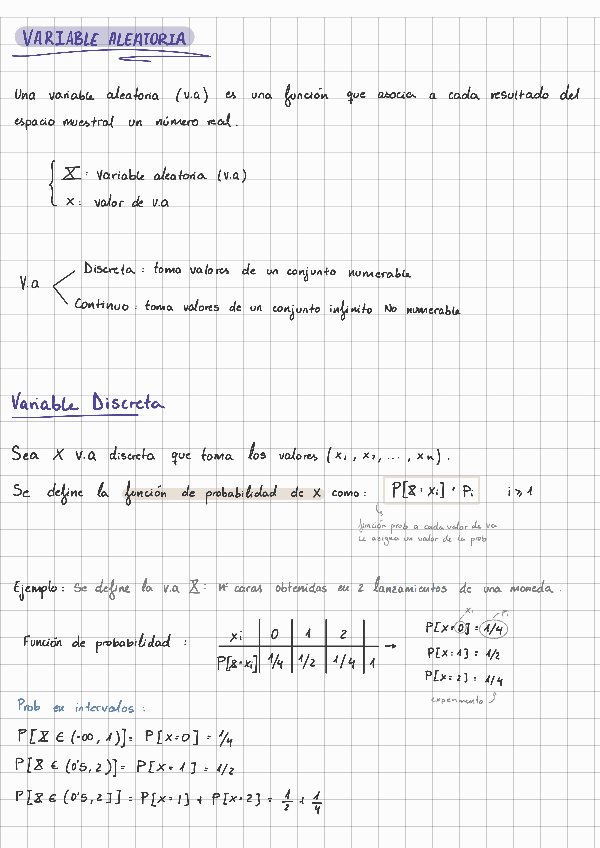 VARIABLE ALEATORIA
Una variable aleatoria (v.a) es una función que asocia a cada resultado del
espacio muestral un número real.
X: Variable aleatoria (v.a)
x: valor de v.a
V.a
Discreta: toma valores de un conjunto numerable
Continuo: toma valores de un conjunto infinito No numerable
Variable Discreta
Sea X v.a discreta que toma los valores (x₁, x₂, ..., xn).
Se define la función de probabilidad de X como: P[X=xi] = Pi i≥1
función prob a cada valor de va
Le asigna un valor de la prob
Ejemplo: Se define la v.a X: nº caras obtenidas en 2 lanzamientos de una moneda.
Función de probabilidad:
xi 0 1 2
P[X=xi] 1/4 1/2 1/4 1
→
xi Pi
P[X=0] = 1/4
P[X=1] = 1/2
P[X=2] = 1/4
experimento
Prob en intervalos:
P[X ∈ (-∞, 1)] = P[X=0] = 1/4
P[X ∈ (0'5, 2)] = P[X=1] = 1/2
P[X ∈ (0'5, 2]] = P[X=1] + P[X=2] = 1/2 + 1/4